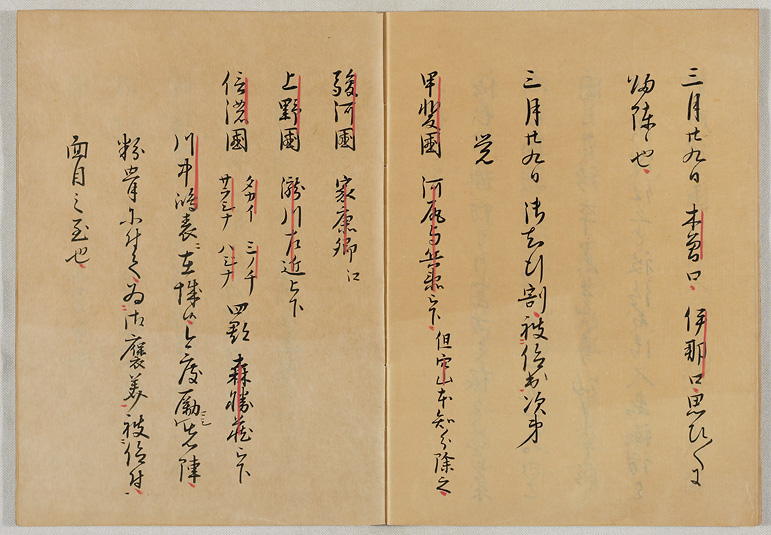 三月廿九日 木曽口 伊那口思ひ〳〵に
帰陣也
三月廿九日 御知行割被仰出次第
覚
甲斐国 河尻与兵衛ニ被下 但穴山本知分除之
駿河国 家康卿江
上野国 瀧川左近被下
信濃国 タカイ ミノチ サラシナ ハニシナ 四郡 森勝蔵被下
川中嶋表ニ在城候 今度励先陣
粉骨ニ付て為御褒美被仰付
面目之至也